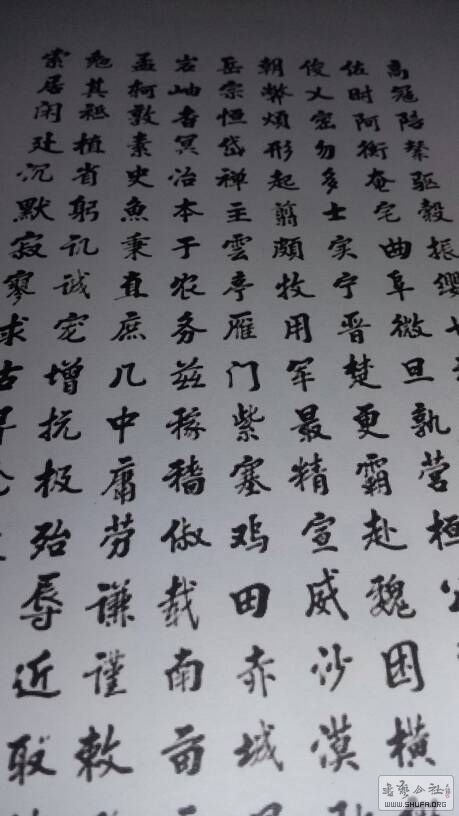 高冠陪辇驱毂振缨
佐时阿衡奄宅曲阜微旦孰营桓公
俊乂密勿多士实宁晋楚更霸赵魏困横
朝弊煩形起翦頗牧用军最精宣威沙漠
岳宗恒岱禅主雲亭雁门紫塞鸡田赤城
岩岫杳冥治本于农务兹稼穑俶载南亩
孟柯敦素史魚秉直庶几中庸劳谦谨敕
勉其祗植省躬讥诫宠增抗极殆辱近耻
索居闲处沉默寂寥求古寻
WWW.SHUFA.ORG